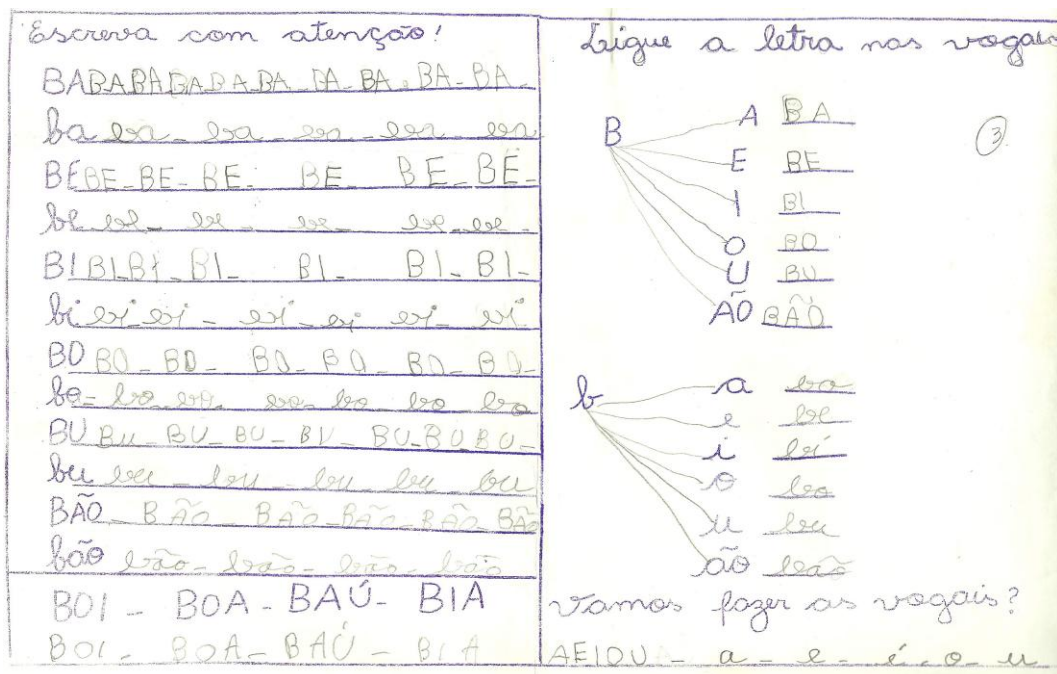 Escreva com atenção!
BABABABABABA-BA-BA-BA-BA-
ba ba- ba-ba-ba-ba
BEBE-BE-BE- BE- BE-BE-
be be- be- be- be-be-
BIBIBI-BI- BI- BI-BI-
bi bi-bi- bi-bi bi- bi
BO BO-BO- BO-BO-BO-BO-
bo-bo-bo- bo-bo-bo-bo
BU Bu-BU-BU-BU-BU-BUBU-
bu bu-bu-bu-bu-bu
BÃO-BÃO-BÃO-BÃO-BÃO-BÃO
bão bão-bão-bão-bão
BOI - BOA - BAÚ- BIA
BOI- BOA- BAÚ- BIA
Ligue a letra nas vogais
3
B
A BA
E BE
I BI
O BO
U BU
ÃO BÃO
b
a ba
e be
i bi
o bo
u bu
ão bão
Vamos fazer as vogais?
AEIOU - a - e - i - o - u